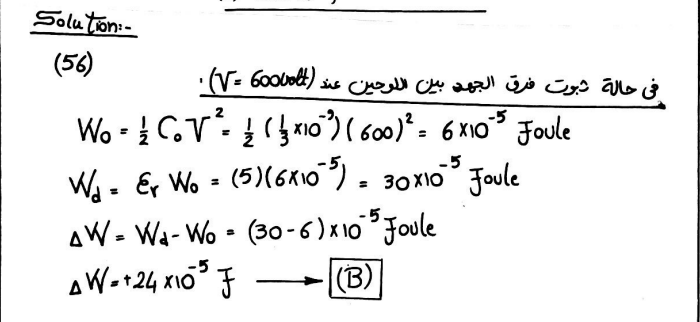 Solution:-
(56)
في حالة ثبوت فرق الجهد بين اللوحين عند (V= 600volt) .
W₀ = ½ C₀V² = ½ (⅓ x10⁻⁹)(600)² = 6 x10⁻⁵ Joule
W_d = Ɛr W₀ = (5)(6x10⁻⁵) = 30x10⁻⁵ Joule
ΔW = W_d - W₀ = (30-6)x10⁻⁵ Joule
ΔW = +24 x10⁻⁵ J ⟶ (B)